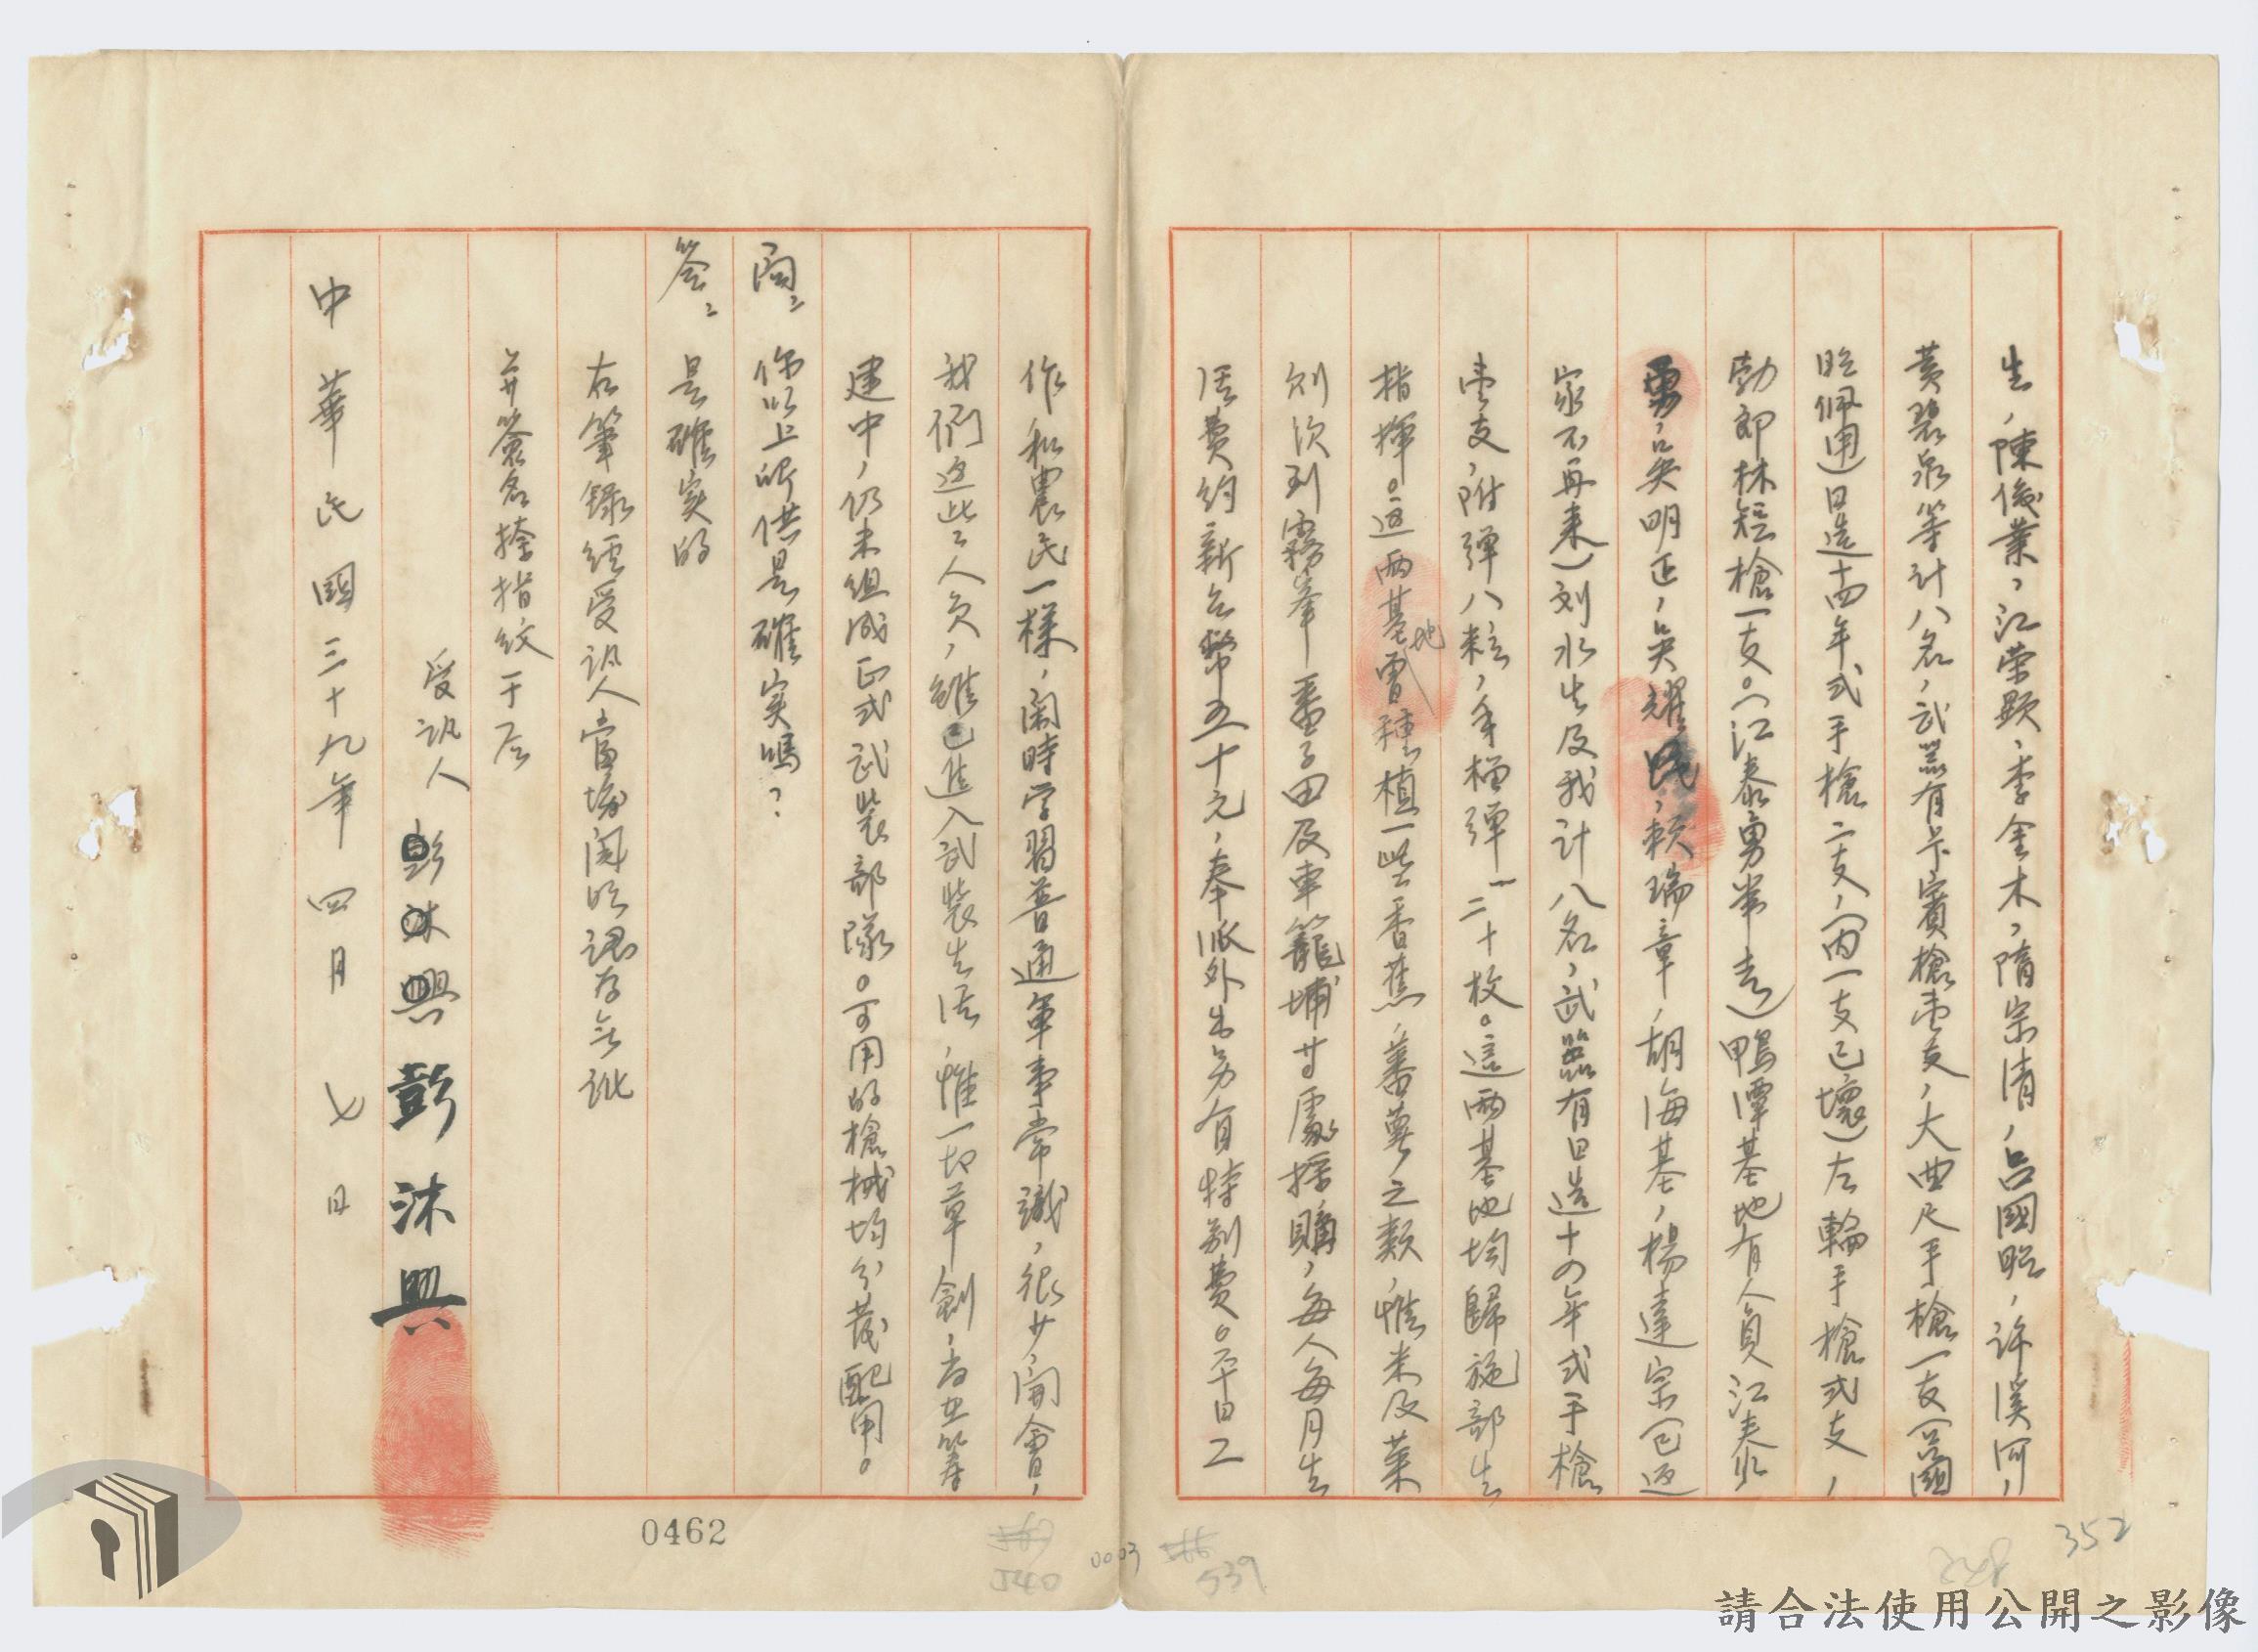 生，陳俊業，江榮顯，李金木，隋宗清，呂國昭，許溪河，
黃碧泉等計八名，武器有卡賓槍壹支，大曲尺手槍一支（呂國
昭佩用）日造十四年式手槍二支，（內一支已壞）左輪手槍弍支，
勃郎林短槍一支。（江泰勇帶走）鴨潭基地有人員江泰
勇，吳明正，吳耀民，賴瑞章，胡海基，楊達宗（已返
家不再來）刘水生及我計八名，武器有日造十四年式手槍
壹支，附彈八粒，手榴彈二十枚。這兩基地均歸施部生
指揮。這兩基地種植一些香蕉，蕃薯之類，惟米及菜
則須到霧峯番子田及車籠埔廿處採購，每人每月生
活費約新台幣五十元，奉派外出另有特別費。平日工
作和農民一樣，閑時学習普通軍事常識，很少開會，
我們這些人員，雖已進入武裝生活，惟一切草創，尚在籌
建中，仍未組成正式武裝部隊。可用的槍械均分發配用。
問：你以上所供是確实嗎？
答：是確实的
右筆錄經受訊人當場閱明認為無訛
并簽名捺指紋于后
受訊人 彭沐興 彭沐興
中華民國三十九年四月七日
0462
540
0003
539
352
請合法使用公開之影像